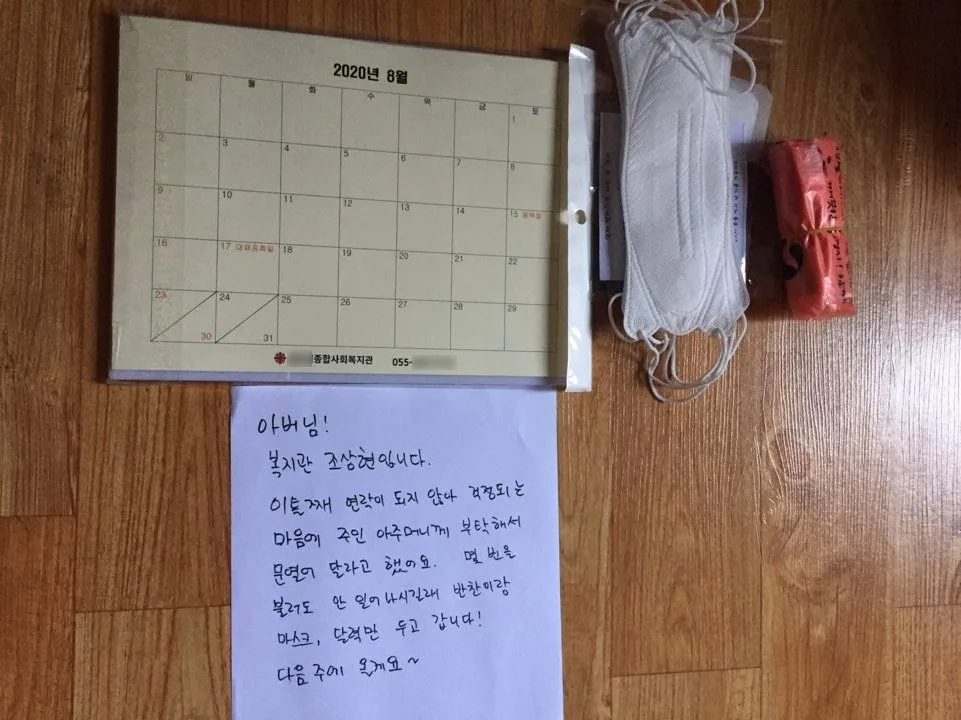 2020년 8월
일 월 화 수 목 금 토
1
2 3 4 5 6 7 8
9 10 11 12 13 14 15 광복절
16 17 대체공휴일 18 19 20 21 22
23 24 25 26 27 28 29
30 31
종합사회복지관 055-
아버님!
복지관 조상현입니다.
이틀째 연락이 되지 않아 걱정되는
마음에 주인 아주머니께 부탁해서
문열어 달라고 했어요. 몇 번을
불러도 안 일어나시길래 반찬이랑
마스크, 달력만 두고 갑니다!
다음주에 올게요~